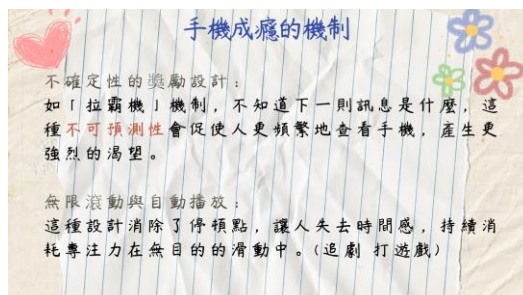 手機成癮的機制
不確定性的獎勵設計：
如「拉霸機」機制，不知道下一則訊息是什麼，這
種不可預測性會促使人更頻繁地查看手機，產生更
強烈的渴望。
無限滾動與自動播放：
這種設計消除了停頓點，讓人失去時間感，持續消
耗專注力在無目的的滑動中。(追劇 打遊戲)